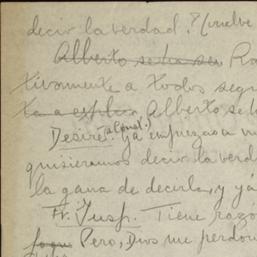 decir la verdad? (vuelve
Alberto se ha sen Ra
tivamente a todos segu
ta a explic Alberto se le
Desiré. Ya empieza a
quisieramos decir la verd
la gana de decirla, y yá
Fr. Insp. Tiene razó
Pero, Dios me perdon